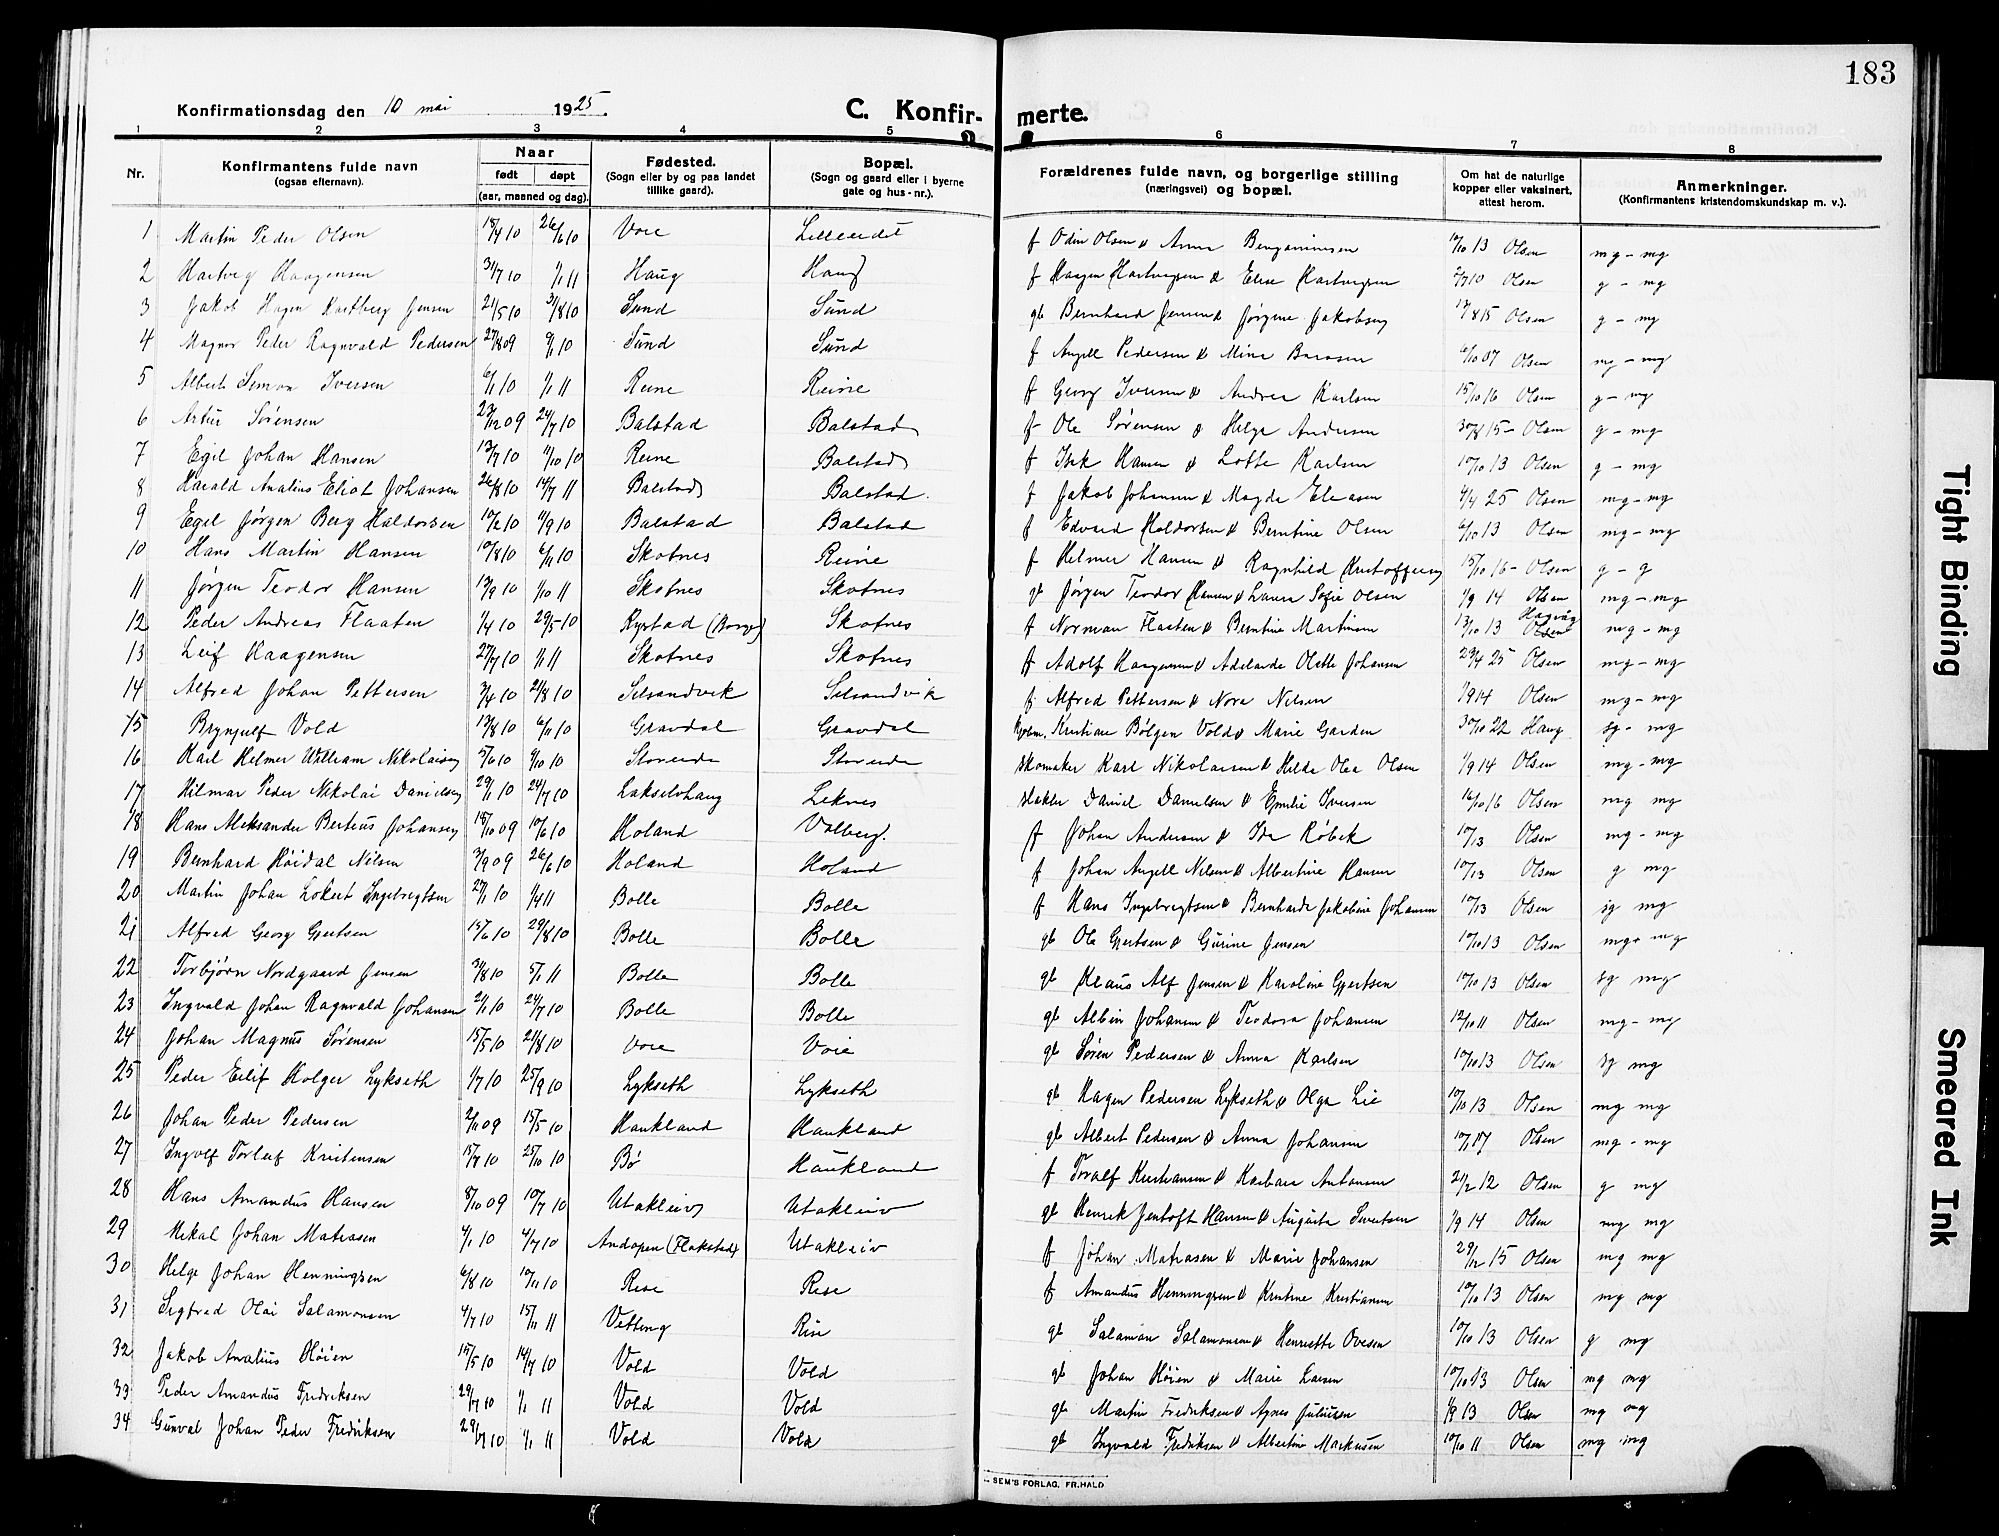 183
Konfirmationsdag den 10 mai 1925. C. Konfir- merte.
1 2 3 4 5 6 7 8
Nr. Konfirmantens fulde navn (ogsaa efternavn). Naar født døpt (aar, maaned og dag). Fødested. (Sogn eller by og paa landet tillike gaard). Bopæl. (Sogn og gaard eller i byerne gate og hus-nr.). Forældrenes fulde navn, og borgerlige stilling (næringsvei) og bopæl. Om hat de naturlige kopper eller vaksinert, attest herom. Anmerkninger. (Konfirmantens kristendomskundskap m. v.).
1 Martin Peder Olsen 15/4 10 26/6 10 Voie f Odin Olsen & Anna Benjaminsen 10/10 13 Olsen mg - mg
2 Hartvig Haagensen 31/7 10 1/1 11 Haug Haug f Haagen Hartvigsen & Elise Hartvigsen 2/7 10 Olsen g - mg
3 Jakob Hagen Hartberg Jensen 21/5 10 31/8 10 Sund Sund gb Bernhard Jensen & Jørgine Jakobsen 17/8 15 Olsen g - mg
4 Magnor Peder Ragnvald Pedersen 27/8 09 Sund Sund f Angell Pedersen & Mina 6/10 07 Olsen mg - mg
5 Albert Simon Iversen 6/1 10 1/1 11 Reine Reine f Georg Iversen & Andrea Karlsen 15/10 16 Olsen g - mg
6 Artur Sørensen 23/12 09 24/7 10 Balstad Balstad f Ole Sørensen & Helga Andersen 30/8 15 - Olsen g - mg
7 Egil Johan Hansen 13/7 10 11/10 10 Reine Balstad f Hansen & Lotte Karlsen 10/10 13 Olsen g - mg
8 Harald Analius Eliot Johansen 26/8 10 14/7 11 Balstad Balstad. f Jakob Johansen & Magda Eleasen 4/4 25 Olsen mg - mg
9 Egil Jørgen Berg Haldorsen 10/2 10 11/9 10 Balstad Balstad f Edvard Haldorsen & Berntine Olsen 6/10 13 Olsen mg - mg
10 Hans Martin Hansen 10/8 10 6/11 10 Skotnes Reine f Helmer Hansen & Ragnhild Kristoffersen 15/10 16 - Olsen g - g
11 Jørgen Teodor Hansen 13/9 10 1/10 11 Skotnes Skotnes gb Jørgen Teodor Hansen & Laura Sofie Olsen 1/9 14 Olsen mg - mg
12 Peder Andreas Flaaten 1/4 10 29/5 10 Kystad (Borge) Skotnes f Norman Flaaten & Berntine Martinsen 13/10 13 Olsen mg - mg
13 Leif Haagensen 27/7 10 1/1 11 Skotnes Skotnes f Adolf Haagensen & Adelarde Olette Johansen 23/4 25 Olsen mg - mg
14 Alfred Johan Pettersen 3/4 10 21/8 10 Silsandvik Silsandvik f Alfred Pettersen & Nora Nilsen 1/9 14 Olsen mg - mg
15 Brynjulf Vold 13/8 10 6/11 10 Gravdal Gravdal Kristian Bølgen Vold & Marie Garden 30/10 22 Haug sg - mg
16 Karl Helmer William Nikolaisen 5/6 10 9/10 10 Storeide Storeide skomaker Karl Nikolaisen & Helda Olea Olsen 1/9 14 Olsen mg - mg
17 Hilmar Peder Nikolai Danielsen 29/1 10 24/7 10 Lakselvhaug Leknes Daniel Danielsen & Emilie Iversen 16/10 16 Olsen mg mg
18 Hans Aleksander Berteus Johansen 15/10 09 10/6 10 Holand Valberg. f Johan Andersen & Ida Røbek 10/13 Olsen mg - mg
19 Bernhard Høidal Nilsen 3/9 09 26/6 10 Holand Holand f Johan Angell Nilsen & Albertine Hansen 10/13 Olsen g mg
20 Martin Johan Lokert Ingebrigtsen 27/1 10 1/4 11 Bolle Bolle f Hans Ingebrigtsen & Bernharda Jakobine Johansen 10/13 Olsen sg mg
21 Alfred Georg Gjertsen 15/6 10 29/8 10 Bolle Bolle gb Ole Gjertsen & Gurine Jensen 10/10 13 Olsen mg + mg
22 Torbjørn Nordgaard Jensen 31/8 10 5/1 11 Bolle Bolle gb Klaus Alf Jensen & Karoline Gjertsen 10/10 13 Olsen sg mg
23 Ingvald Johan Ragnvald Johansen 21/1 10 24/7 10 Bolle Bolle gb Albin Johansen & Teodora Johansen 12/10 11 Olsen mg - mg
24 Johan Magnus Sørensen 15/5 10 21/8 10 Voie Voie gb Søren Pedersen & Anna Karlsen 10/10 13 Olsen sg mg
25 Peder Eilif Holger Lykseth 1/7 10 25/9 10 Lykseth Lykseth gb Hagen Pedersen Lykseth & Olga Lie 10/10 13 Olsen mg mg
26 Johan Peder Pedersen 2/11 09 15/5 10 Haukland Haukland gb Albert Pedersen & Anna Johansen 10/1 17 Olsen mg - mg
27 Ingolf Torleif Kristensen 15/7 10 25/10 10 Bø Haukland f Toralf Kristiansen & Barbara Antonsen 21/2 12 Olsen g mg
28 Hans Amandus Hansen 8/10 09 10/7 10 Utakleiv Utakleiv gb Henrik Jentoft Hansen & Augusta Sivertsen 1/9 14 Olsen mg mg
29 Mekal Johan Matiasen 4/1 10 4/7 10 Andopen (Flakstad) Utakleiv f Johan Matiasen & Marie Johansen 29/12 15 Olsen mg mg
30 Helge Johan Henningsen 6/8 10 10/11 10 Rise Rise f Amandus Henningsen & Kristine Kristiansen 10/10 13 Olsen mg mg
31 Sigfred Olai Salamonsen 4/7 10 15/11 11 Vetting Rise gb Salamon Salamonsen & Henriette Ovesen 10/10 13 Olsen g mg
32 Jakob Analius Høien 15/5 10 14/7 10 Vold Vold gb Johan Høien & Marie Larsen 10/10 13 Olsen mg mg
33 Peder Amandus Fredriksen 29/7 10 1/1 11 Vold Vold gb Martin Fredriksen & Agnes Juliussen 1/9 13 Olsen mg mg
34 Gunval Johan Peder Fredriksen 29/7 10 1/1 11 Vold Vold gb Ingvald Fredriksen & Albertine Markussen 10/10 11 Olsen mg mg
SEM'S FORLAG, FR.HALD
Tight Binding
Smeared Ink